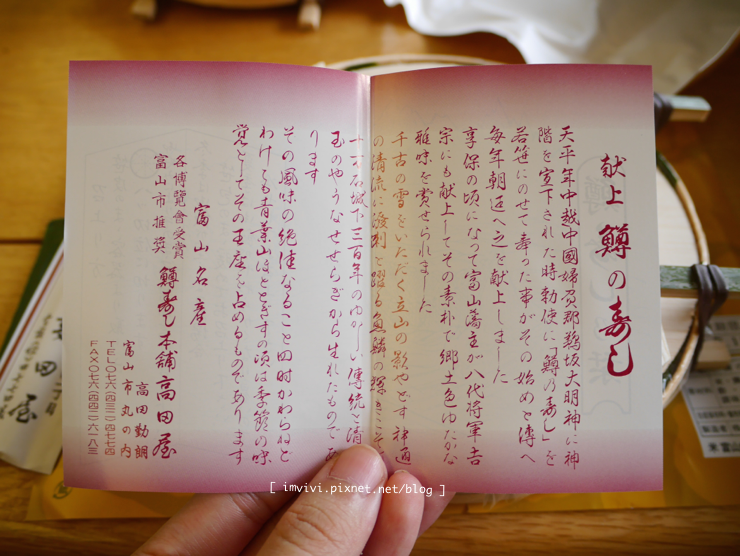 献上 鱒の寿し
天平年中越中國婦負郡鵜坂大明神に神
階を宣下された時勅使に「鱒乃寿し」を
若笹にのせて奉った事がその始めと傳へ
毎年朝廷へ之を献上しました
享保の頃になって富山藩主が八代将軍吉
宗にも献上してその素朴で郷土色ゆたかな
雅味を賞せられました
千古の雪をいただく立山の影やどす神通
の清流に溌剌と躍る魚鱗の輝きこそ
十万石城下三百年のゆかしい傳統と清
玉のやうなせせらぎから生れたものであ
ります
その風味の絶佳なること四時かわらねと
わけても青葉山ほととぎすの頃は季節の味
覚としてその王座を占めるものであります
富山名産
各博覧會受賞
富山市推奨
鱒寿し本舗 高田屋
高田勤嗣
富山市丸の内
TEL〇七六(四三二)四七七四
FAX〇七六(四四二)六一八三
高田屋
[ imvivi.pixnet.net/blog ]